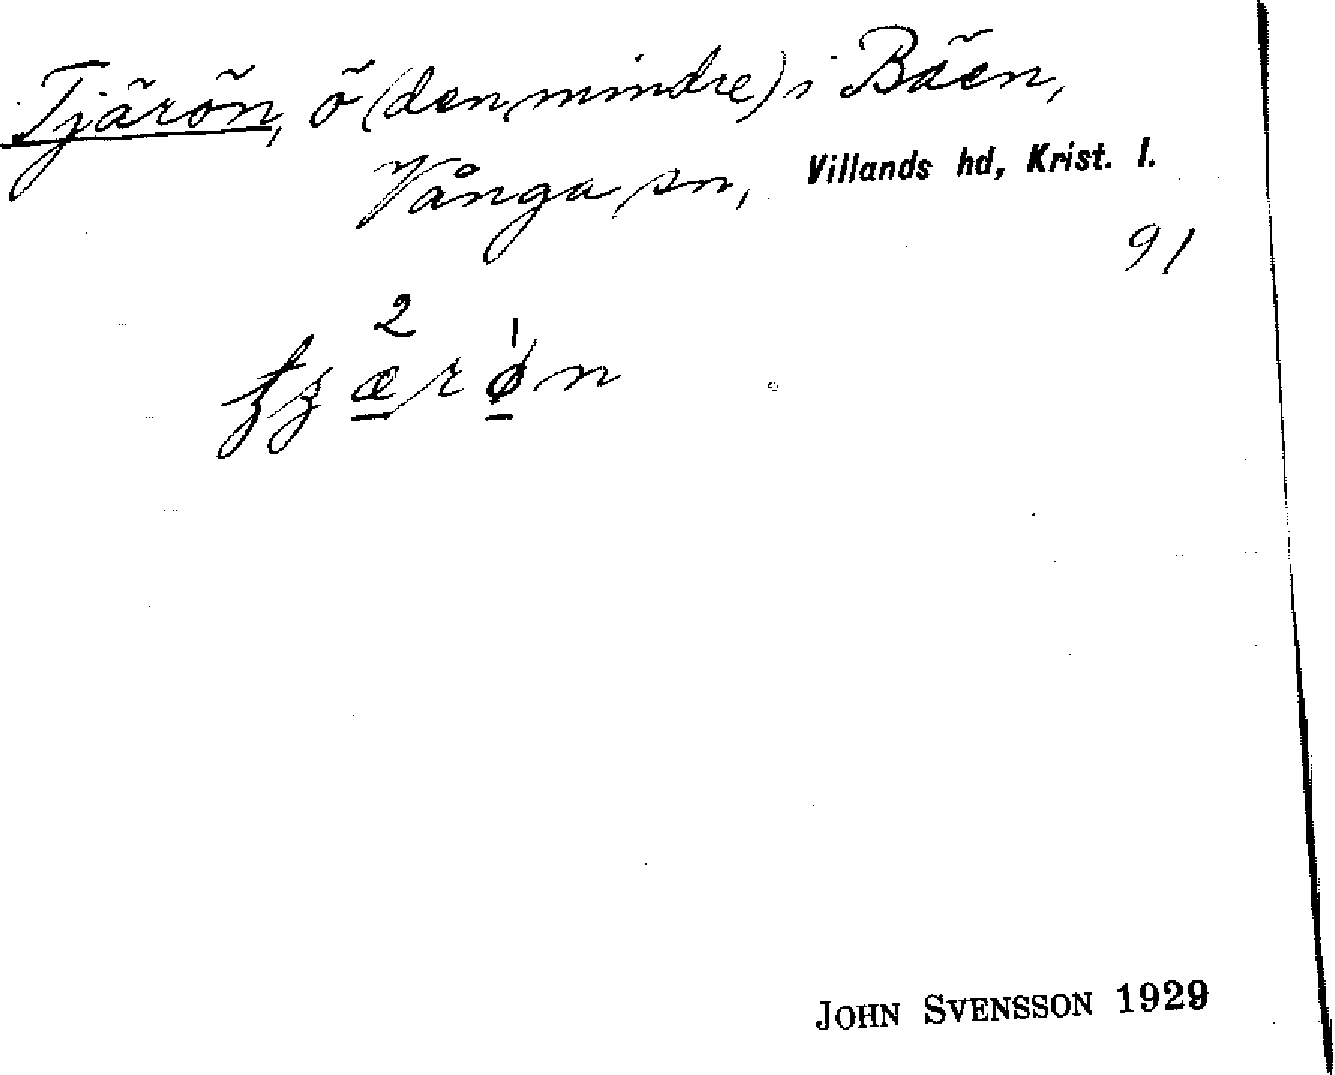 Tjärön, ö (den mindre) i Bäen,
Vånga sn, Villands hd, Krist. l.
91
JOHN SVENSSON 1929